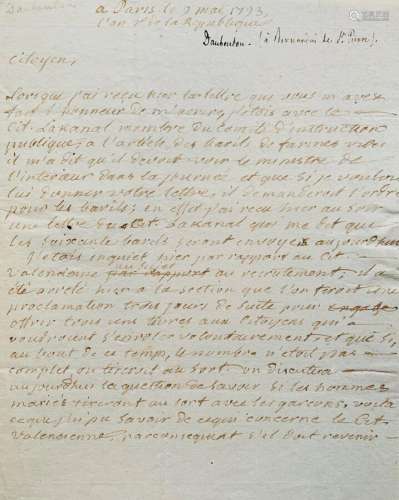 Daubenton
à Paris le 9 mai 1793
l'an 2e de la République
Daubenton. (à Bernardin de St Pierre).
Citoyen,
Lorsque j'ai reçu hier la lettre que vous m'avez
fait l'honneur de m'ecrire, j'étois avec le
Cit. Lakanal membre du comité d'instruction
publique; à l'article des barils de farines vides
il m'a dit qu'il devoit voir le ministre de
l'interieur dans la journée et que si je voulois
lui donner votre lettre, il demanderoit l'ordre
pour les barils; en effet j'ai reçu hier au soir
une lettre du Cit. Lakanal qui me dit que
les soixante barils seront envoyés aujourdhui
J'etois inquiet hier par rapport au Cit
Valencienne au recrutement, il a
été arreté hier a la section que l'on feroit une
proclamation trois jours de suite pour engage
offrir trois cens livres aux Citoyens qui
voudroient s'enroler volontairement, et que si,
au bout de ce temps, le nombre n'etoit pas
complet, on tireroit au sort on discutera
aujourdhui la question de savoir si les hommes
mariés tireront au sort avec les garçons, voila
ce que j'ai pu savoir de ce qui concerne le Cit
Valencienne, par consequent s'il doit revenir